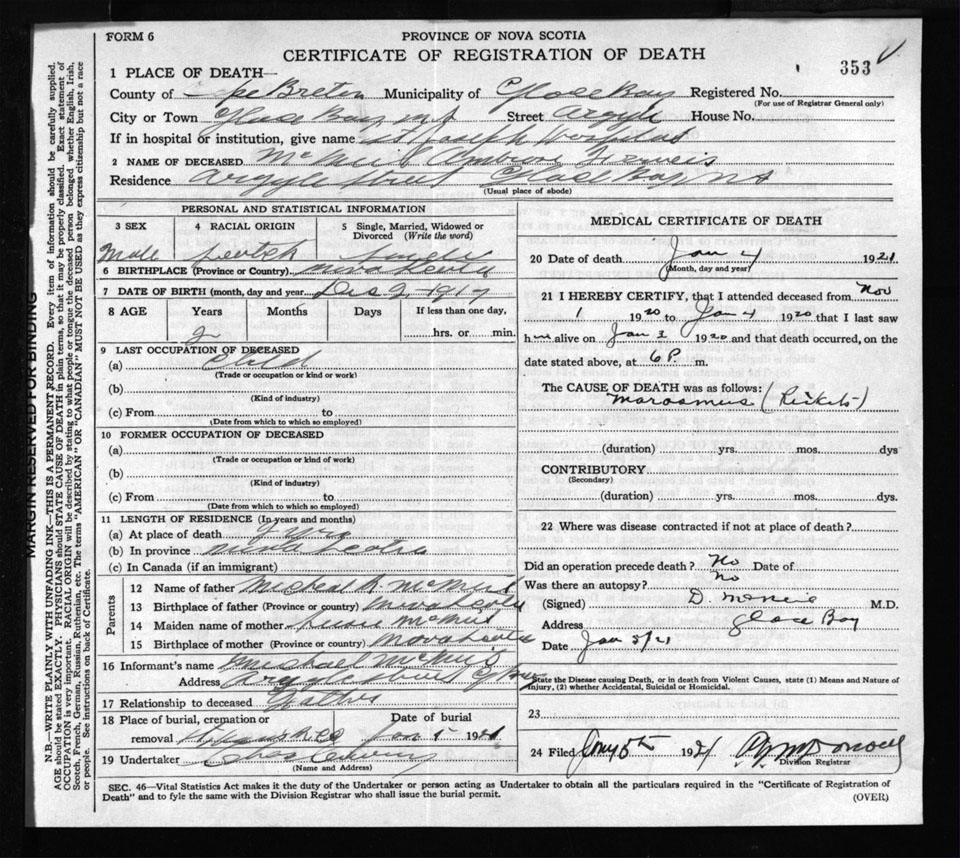 FORM 6
PROVINCE OF NOVA SCOTIA
CERTIFICATE OF REGISTRATION OF DEATH
353
1 PLACE OF DEATH—
County of Cape Breton Municipality of Glace Bay Registered No.
(For use of Registrar General only)
City or Town Glace Bay N.S. Street Argyle House No.
If in hospital or institution, give name St Joseph Hospital
2 NAME OF DECEASED Ambrose Francis
Residence Argyle Street Glace Bay N S
(Usual place of abode)
PERSONAL AND STATISTICAL INFORMATION
3 SEX
4 RACIAL ORIGIN
5 Single, Married, Widowed or Divorced (Write the word)
Male Scotch Single
6 BIRTHPLACE (Province or Country) Nova Scotia
7 DATE OF BIRTH (month, day and year) Dec 9 1917
8 AGE Years Months Days If less than one day,
hrs. or min.
9 LAST OCCUPATION OF DECEASED
(a) Child
(Trade or occupation or kind or work)
(b)
(Kind of industry)
(c) From to
(Date from which to which so employed)
10 FORMER OCCUPATION OF DECEASED
(a)
(Trade or occupation or kind of work)
(b)
(Kind of industry)
(c) From to
(Date from which to which so employed)
11 LENGTH OF RESIDENCE (In years and months)
(a) At place of death
(b) In province Nova Scotia
(c) In Canada (if an immigrant)
Parents
12 Name of father Micheal
13 Birthplace of father (Province or country) Nova Scotia
14 Maiden name of mother
15 Birthplace of mother (Province or country) Nova Scotia
16 Informant's name Michael
Address Argyle Street G Bay
17 Relationship to deceased Father
18 Place of burial, cremation or removal
Date of burial
Jan 5 1921
19 Undertaker
(Name and Address)
MEDICAL CERTIFICATE OF DEATH
20 Date of death Jan 4 1921
(Month, day and year)
21 I HEREBY CERTIFY, that I attended deceased from Nov
1 1920 to Jan 4 1920 that I last saw
him alive on Jan 3 1920 and that death occurred, on the
date stated above, at 6 P. m.
The CAUSE OF DEATH was as follows:
Marasmus (Rickets)
(duration) yrs. mos. dys
CONTRIBUTORY
(Secondary)
(duration) yrs. mos. dys.
22 Where was disease contracted if not at place of death?
Did an operation precede death? No Date of
Was there an autopsy? No
(Signed) D. M.D.
Address Glace Bay
Date Jan 5/21
State the Disease causing Death, or in death from Violent Causes, state (1) Means and Nature of
Injury, (2) whether Accidental, Suicidal or Homicidal.
23
24 Filed 5th 1921
Division Registrar
SEC. 46—Vital Statistics Act makes it the duty of the Undertaker or person acting as Undertaker to obtain all the particulars required in the "Certificate of Registration of
Death" and to fyle the same with the Division Registrar who shall issue the burial permit.
(OVER)
MARGIN RESERVED FOR BINDING
N.B.—WRITE PLAINLY WITH UNFADING INK—THIS IS A PERMANENT RECORD. Every item of information should be carefully supplied.
AGE should be stated EXACTLY. PHYSICIANS should STATE CAUSE OF DEATH in plain terms, so that it may be properly classified. Exact statement of
OCCUPATION is very important. RACIAL ORIGIN will be described by stating to what people or tongue the deceased person belonged whether English, Irish,
Scotch, French, German, Russian, Ruthenian, etc. The terms "AMERICAN" OR "CANADIAN" MUST NOT BE USED as they express citizenship but not a race
or people. See instructions on back of Certificate.